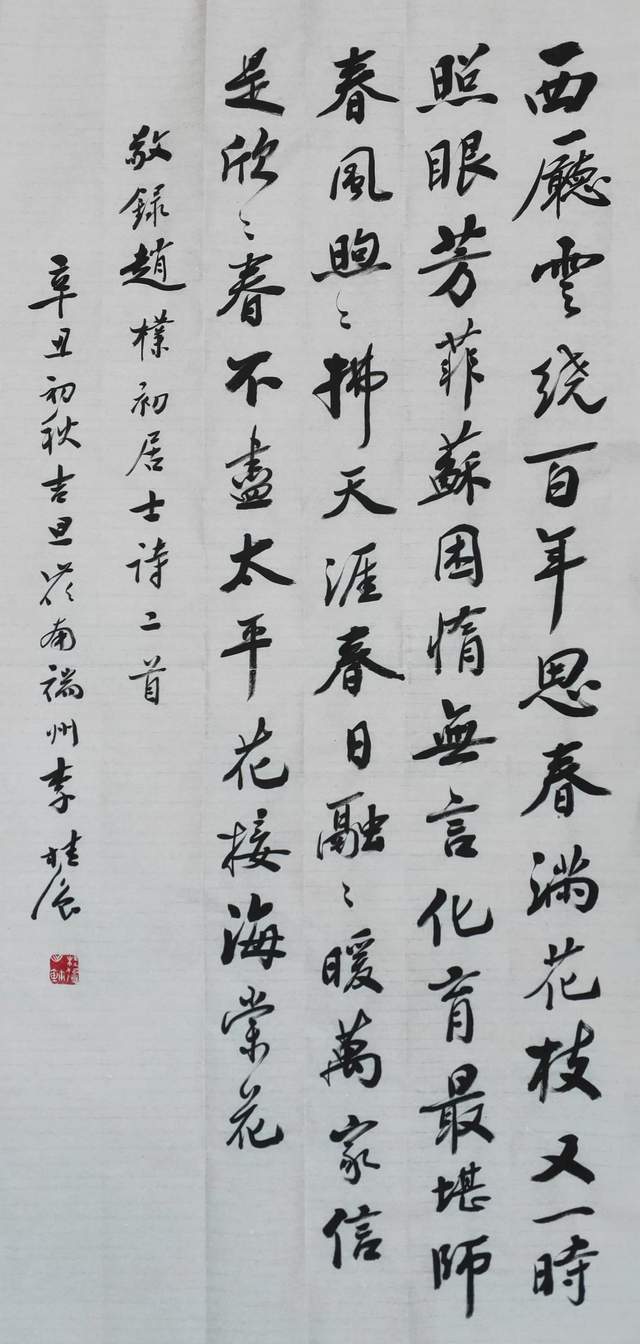 西廳雲绕百年思春滿花枝又一時
照眼芳菲蘇困惰無言化育最堪師
春風煦〻拂天涯春日融〻暖萬家信
是欣〻春不盡太平花接海棠花
敬録趙樸初居士诗二首
辛丑初秋吉旦岭南端州李